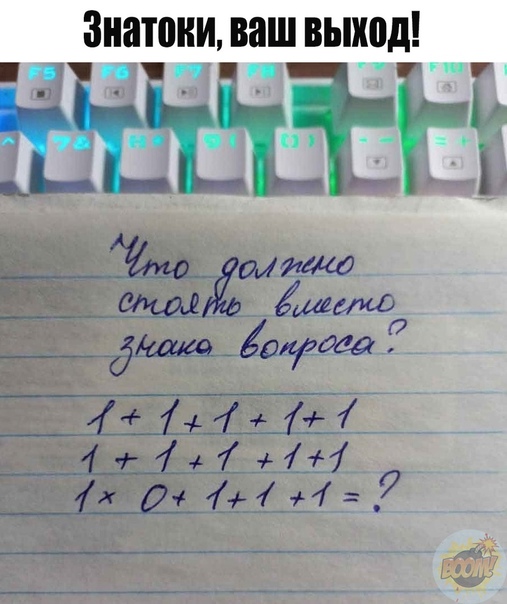 Знатоки, ваш выход!
F5 F6 F7 F8 F9 F10
^ 7& 8* 9( 0) - - = +
Что должно
стоять вместо
знака вопроса?
1 + 1 + 1 + 1 + 1
1 + 1 + 1 + 1 + 1
1 × 0 + 1 + 1 + 1 = ?
BOOM!